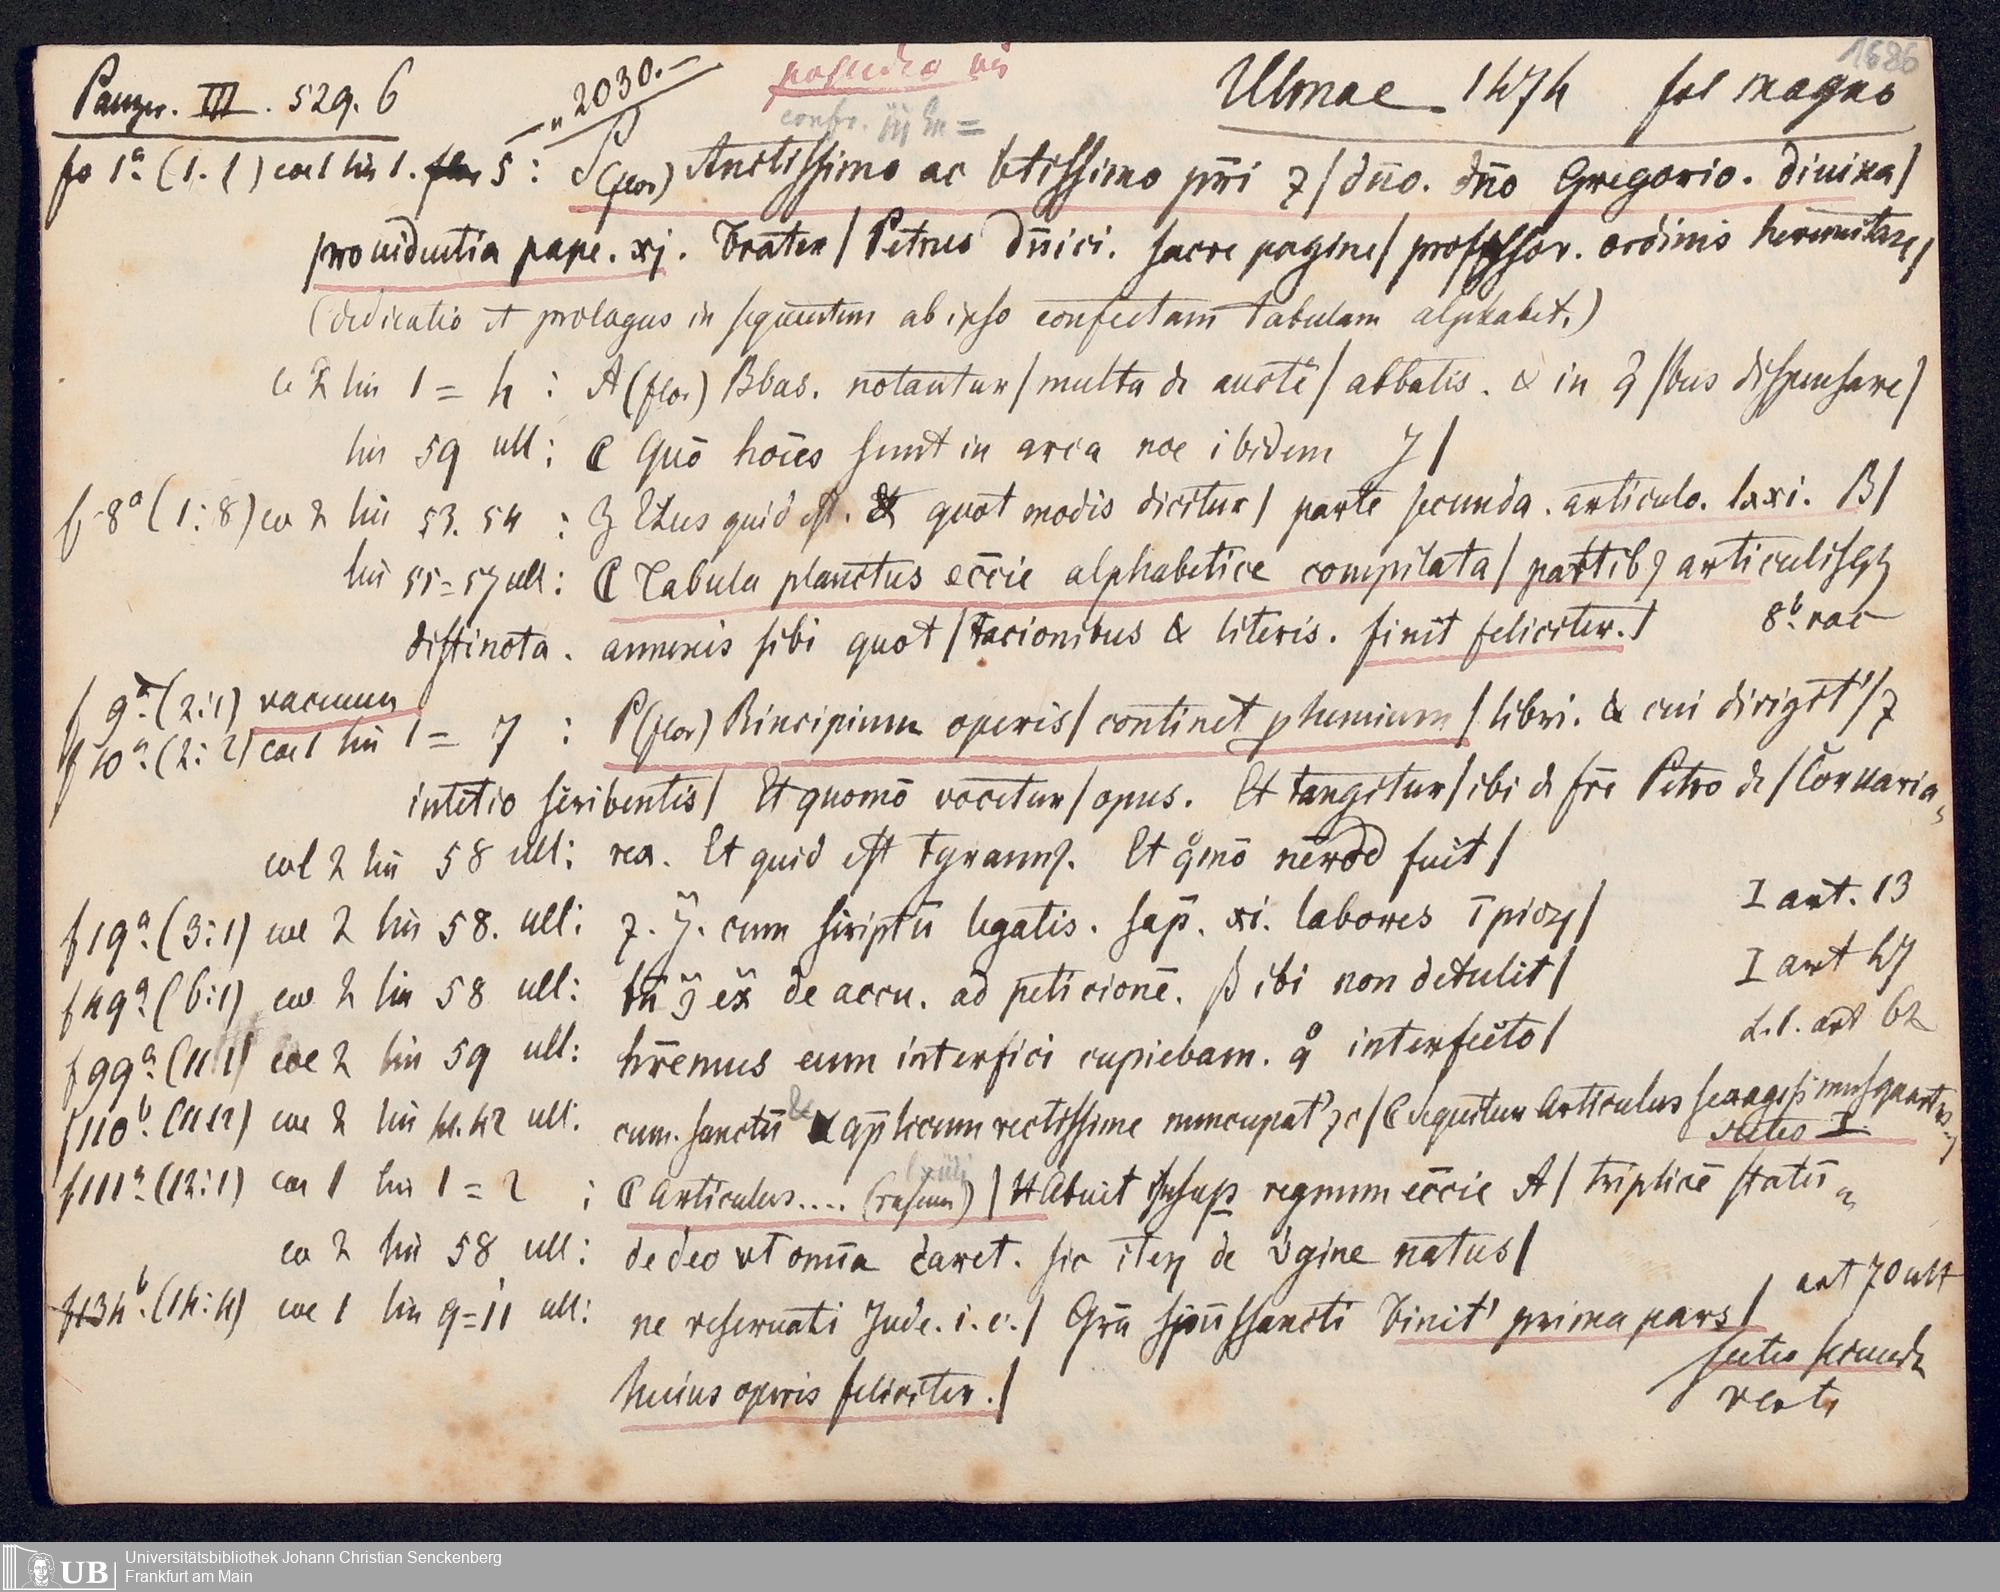 1686
Panzer. III. 529. 6 „2030.— possideo Ulmae 1474 fol magno
fo 1a. (1. 1) col 1 lin 1. 5 : S (flor) Anctissimo ac btissimo pr̄i ⁊ / dn̄o. dn̄o Gregorio. diuina /
prouidentia pape. xj. Frater / Petrus dn̄ici. sacre pagine / professor. ordinis heremitarꝝ /
(dedicatio et prologus in sequentem ab ipso confectam tabulam alphabet.)
co 2 lin 1 = 4 : A (flor) Bbas. notantur / multa de aucte / abbatis. & in q / bus dispensare /
lin 59 ult : ⸿ Quō hoīes sunt in arca noe ibidem /
f 8a (1 : 8) co 2 lin 53. 54 : Z Elus quid est. & quot modis dicitur / parte secunda. articulo. lxxi. B /
lin 55 = 57 ult : ⸿ Tabula planctus ecc̄ie alphabetice compilata / partibꝰ articulisqꝫ
distincta. annexis sibi quot / tacionibus & literis. finit feliciter. / 8b. vac
f 9a. (2 : 1) vacuum
f 10a. (2 : 2) col 1 lin 1 = 7 : P (flor) Rincipium operis / continet phemium / libri. & cui dirigit' / ⁊
intētio scribentis / Et quomō vocetur / opus. Et tangitur / ibi de frē Petro de / Coruaria
col 2 lin 58 ult : rex. Et quid est tyrannꝰ. Et qͦmō fuit /
f 19a. (3 : 1) col 2 lin 58. ult : ⁊. ij. cum scriptū legatis. sap̄. xi. labores īpioꝝ / I art. 13
f 49a. (6 : 1) col 2 lin 58 ult : de accu. ad peticionē. ibi non detulit / I art 47
f 99a. (11 1) col 2 lin 59 ult : hr̄emus eum interfici cupiebam. qͦ interfecto / L. 1. art 62
f 110b. (11 12) col 2 lin 41. 42 ult. cum. sanctū & ap̄licum rectissime nuncupat' ⁊c / ⸿ Sequitur Articulus sexagesimusquartus
f 111a. (12 : 1) col 1 lin 1 = 2 : ⸿ Articulus.... (rasum) / HAbuit insuꝑ regnum ecc̄ie A / triplicē statū
co 2 lin 58 ult : de deo vt omīa caret. sic de natus /
f 134b. (14 : 4) col 1 lin 9 = 11 ult : ne reseruati Jude. i. c. / Grā sp̄ūssancti Finit' prima pars / art 70 ult
huius operis feliciter. / sectio secunda
verte
Universitätsbibliothek Johann Christian Senckenberg
Frankfurt am Main
UB